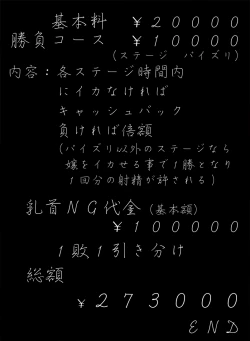 基本料　￥２００００
勝負コース　￥１００００
(ステージ　パイズリ)
内容：各ステージ時間内
にイカなければ
キャッシュバック
負ければ倍額
(パイズリ以外のステージなら
嬢をイカせる事で１勝となり
１回分の射精が許される)
乳首ＮＧ代金(基本額)
￥１０００００
１敗１引き分け
総額
￥２７３０００
ＥＮＤ